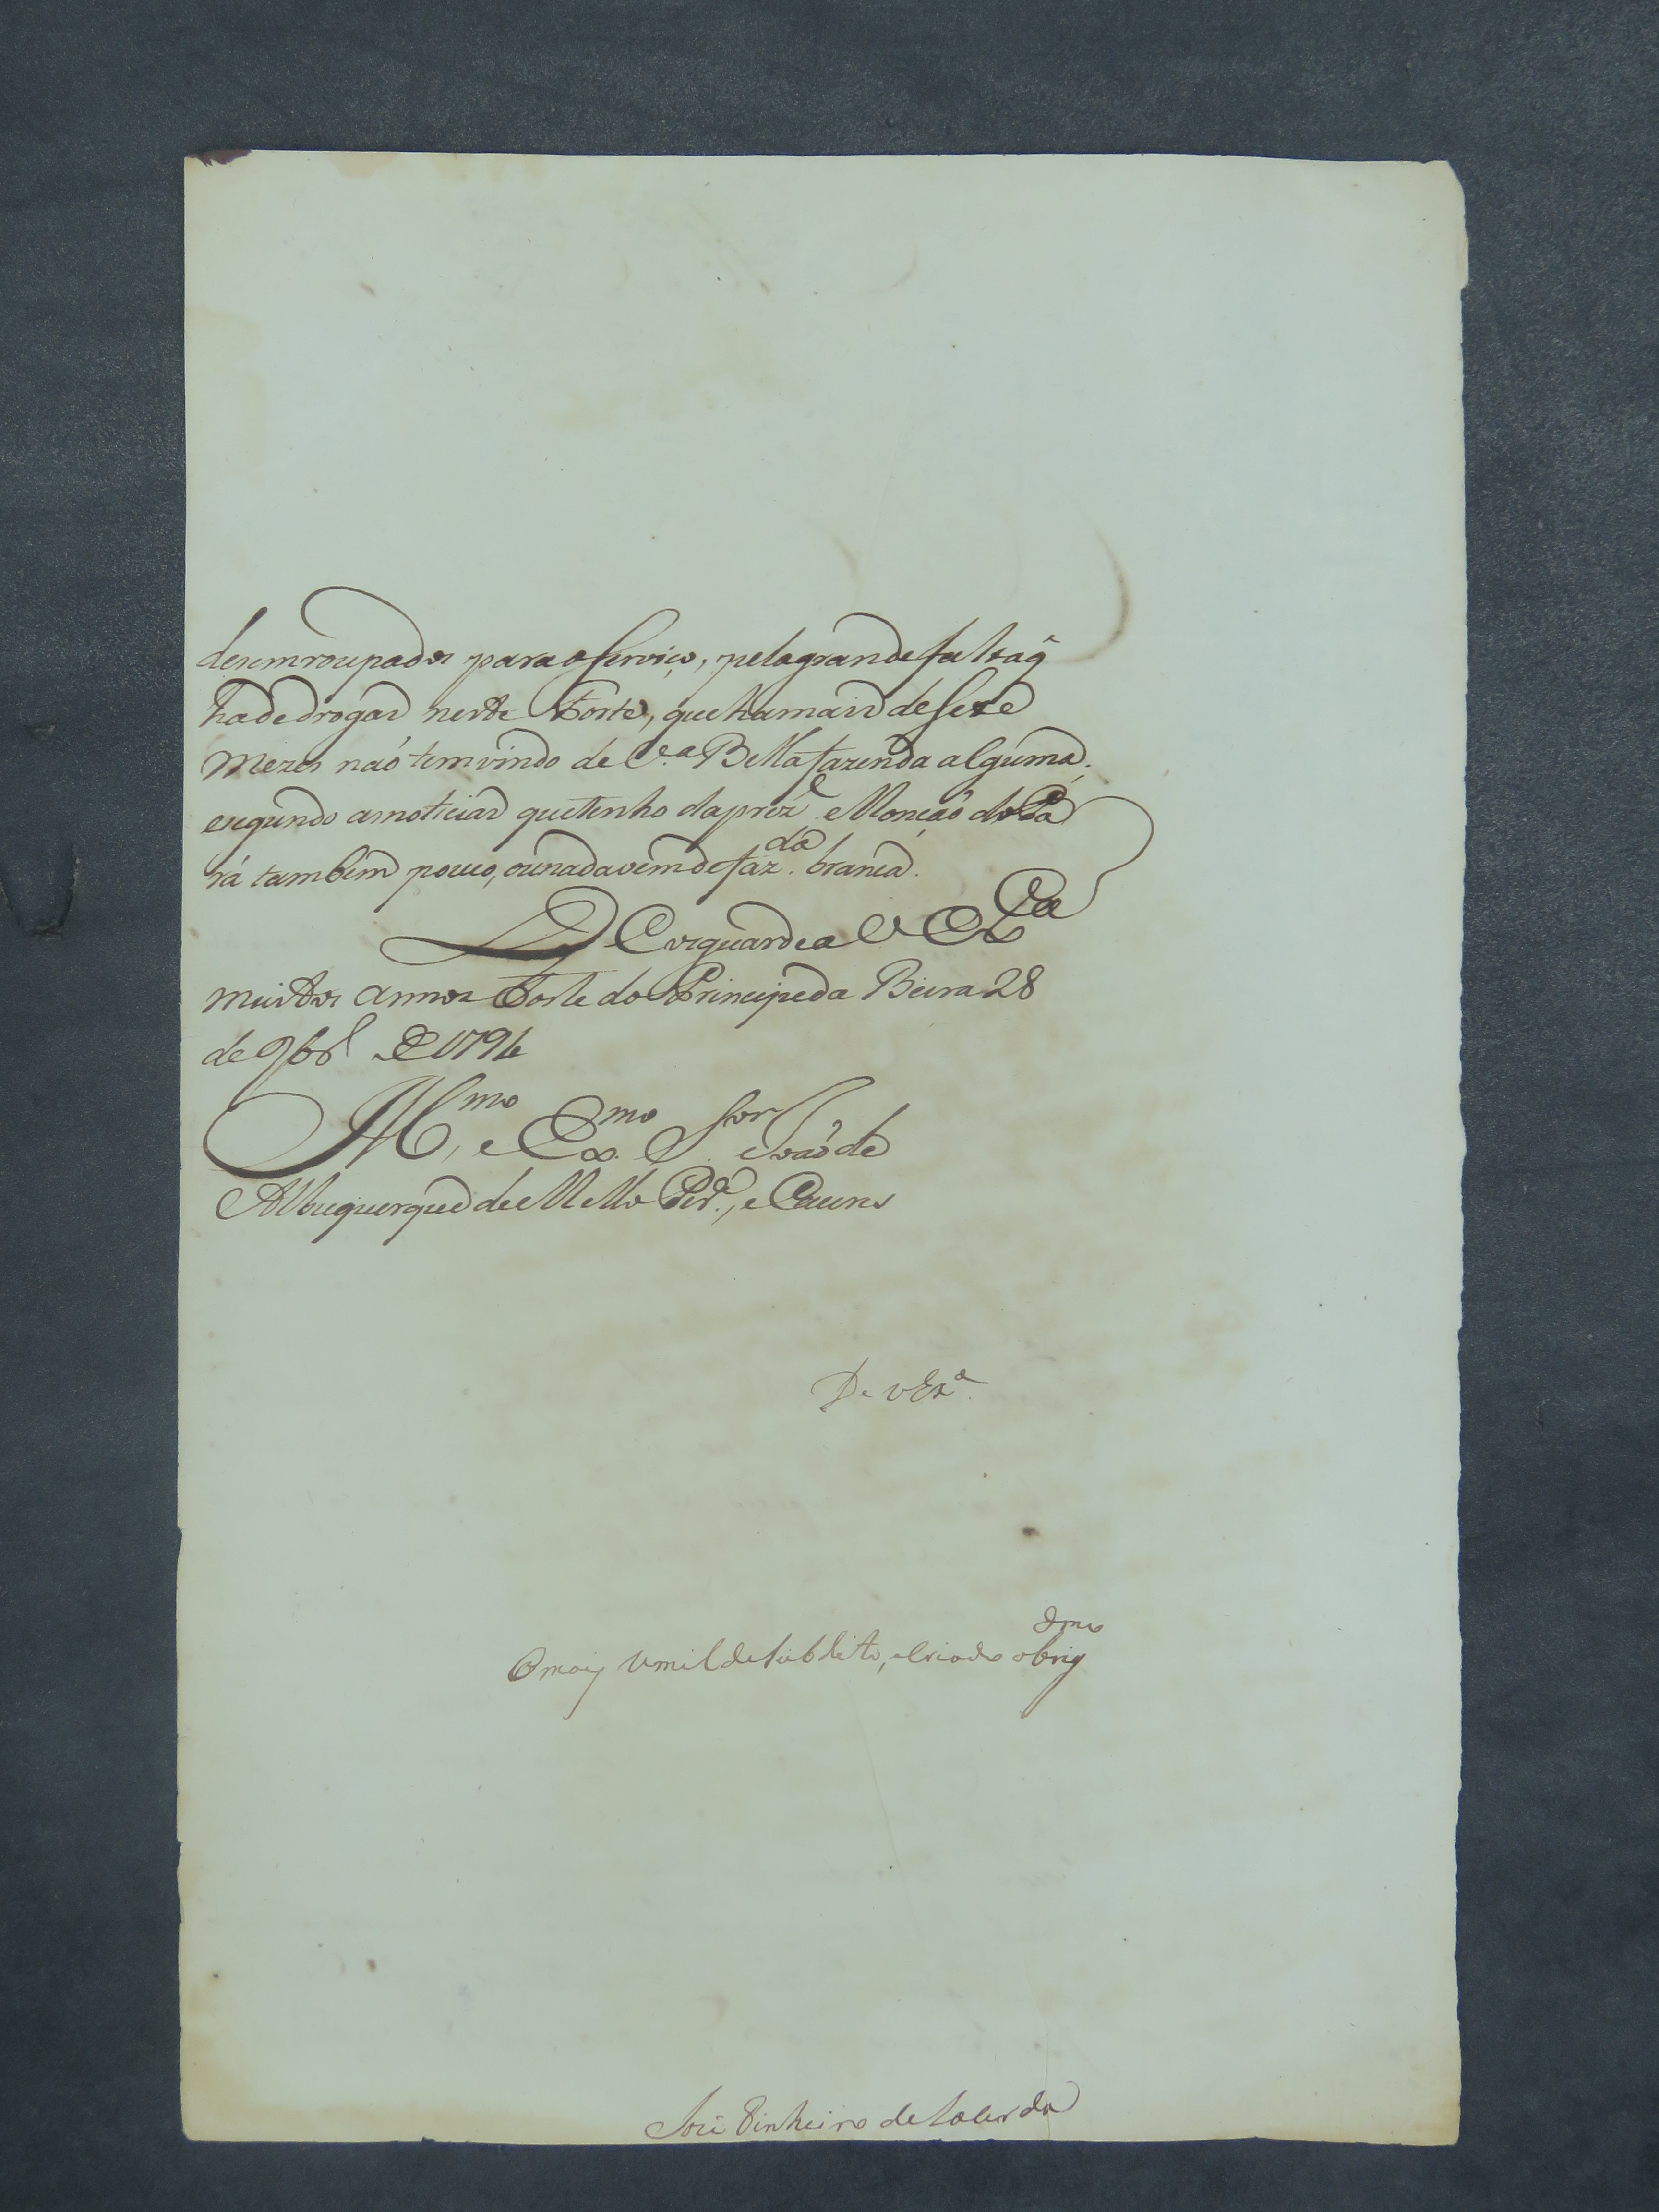 desemroupados para o serviço, pela grande falta q̃
ha de drogas neste Forte, que ha mais de sete
mezes naõ tem vindo de V.ª Bella fazenda alguma;
e segundo as noticias que tenho da proxᵉ Monçaõ do Pa
rá tambem pouco, ou nada vem de fazᵈᵃ. branca.
Ds guarde a V Exᶜᵃ
muitos annos Forte do Principe da Beira 28
de 9bʳ de 1794
Illᵐᵒ, e Exᵐᵒ. Sᵒʳ. Joaõ de
Albuquerque de Mello Perᵃ., e Caceres
De V Exᵃ.
O maiz umilde subdito, e criado obrigᵈᵐᵒ
José Pinheiro de Lacerda